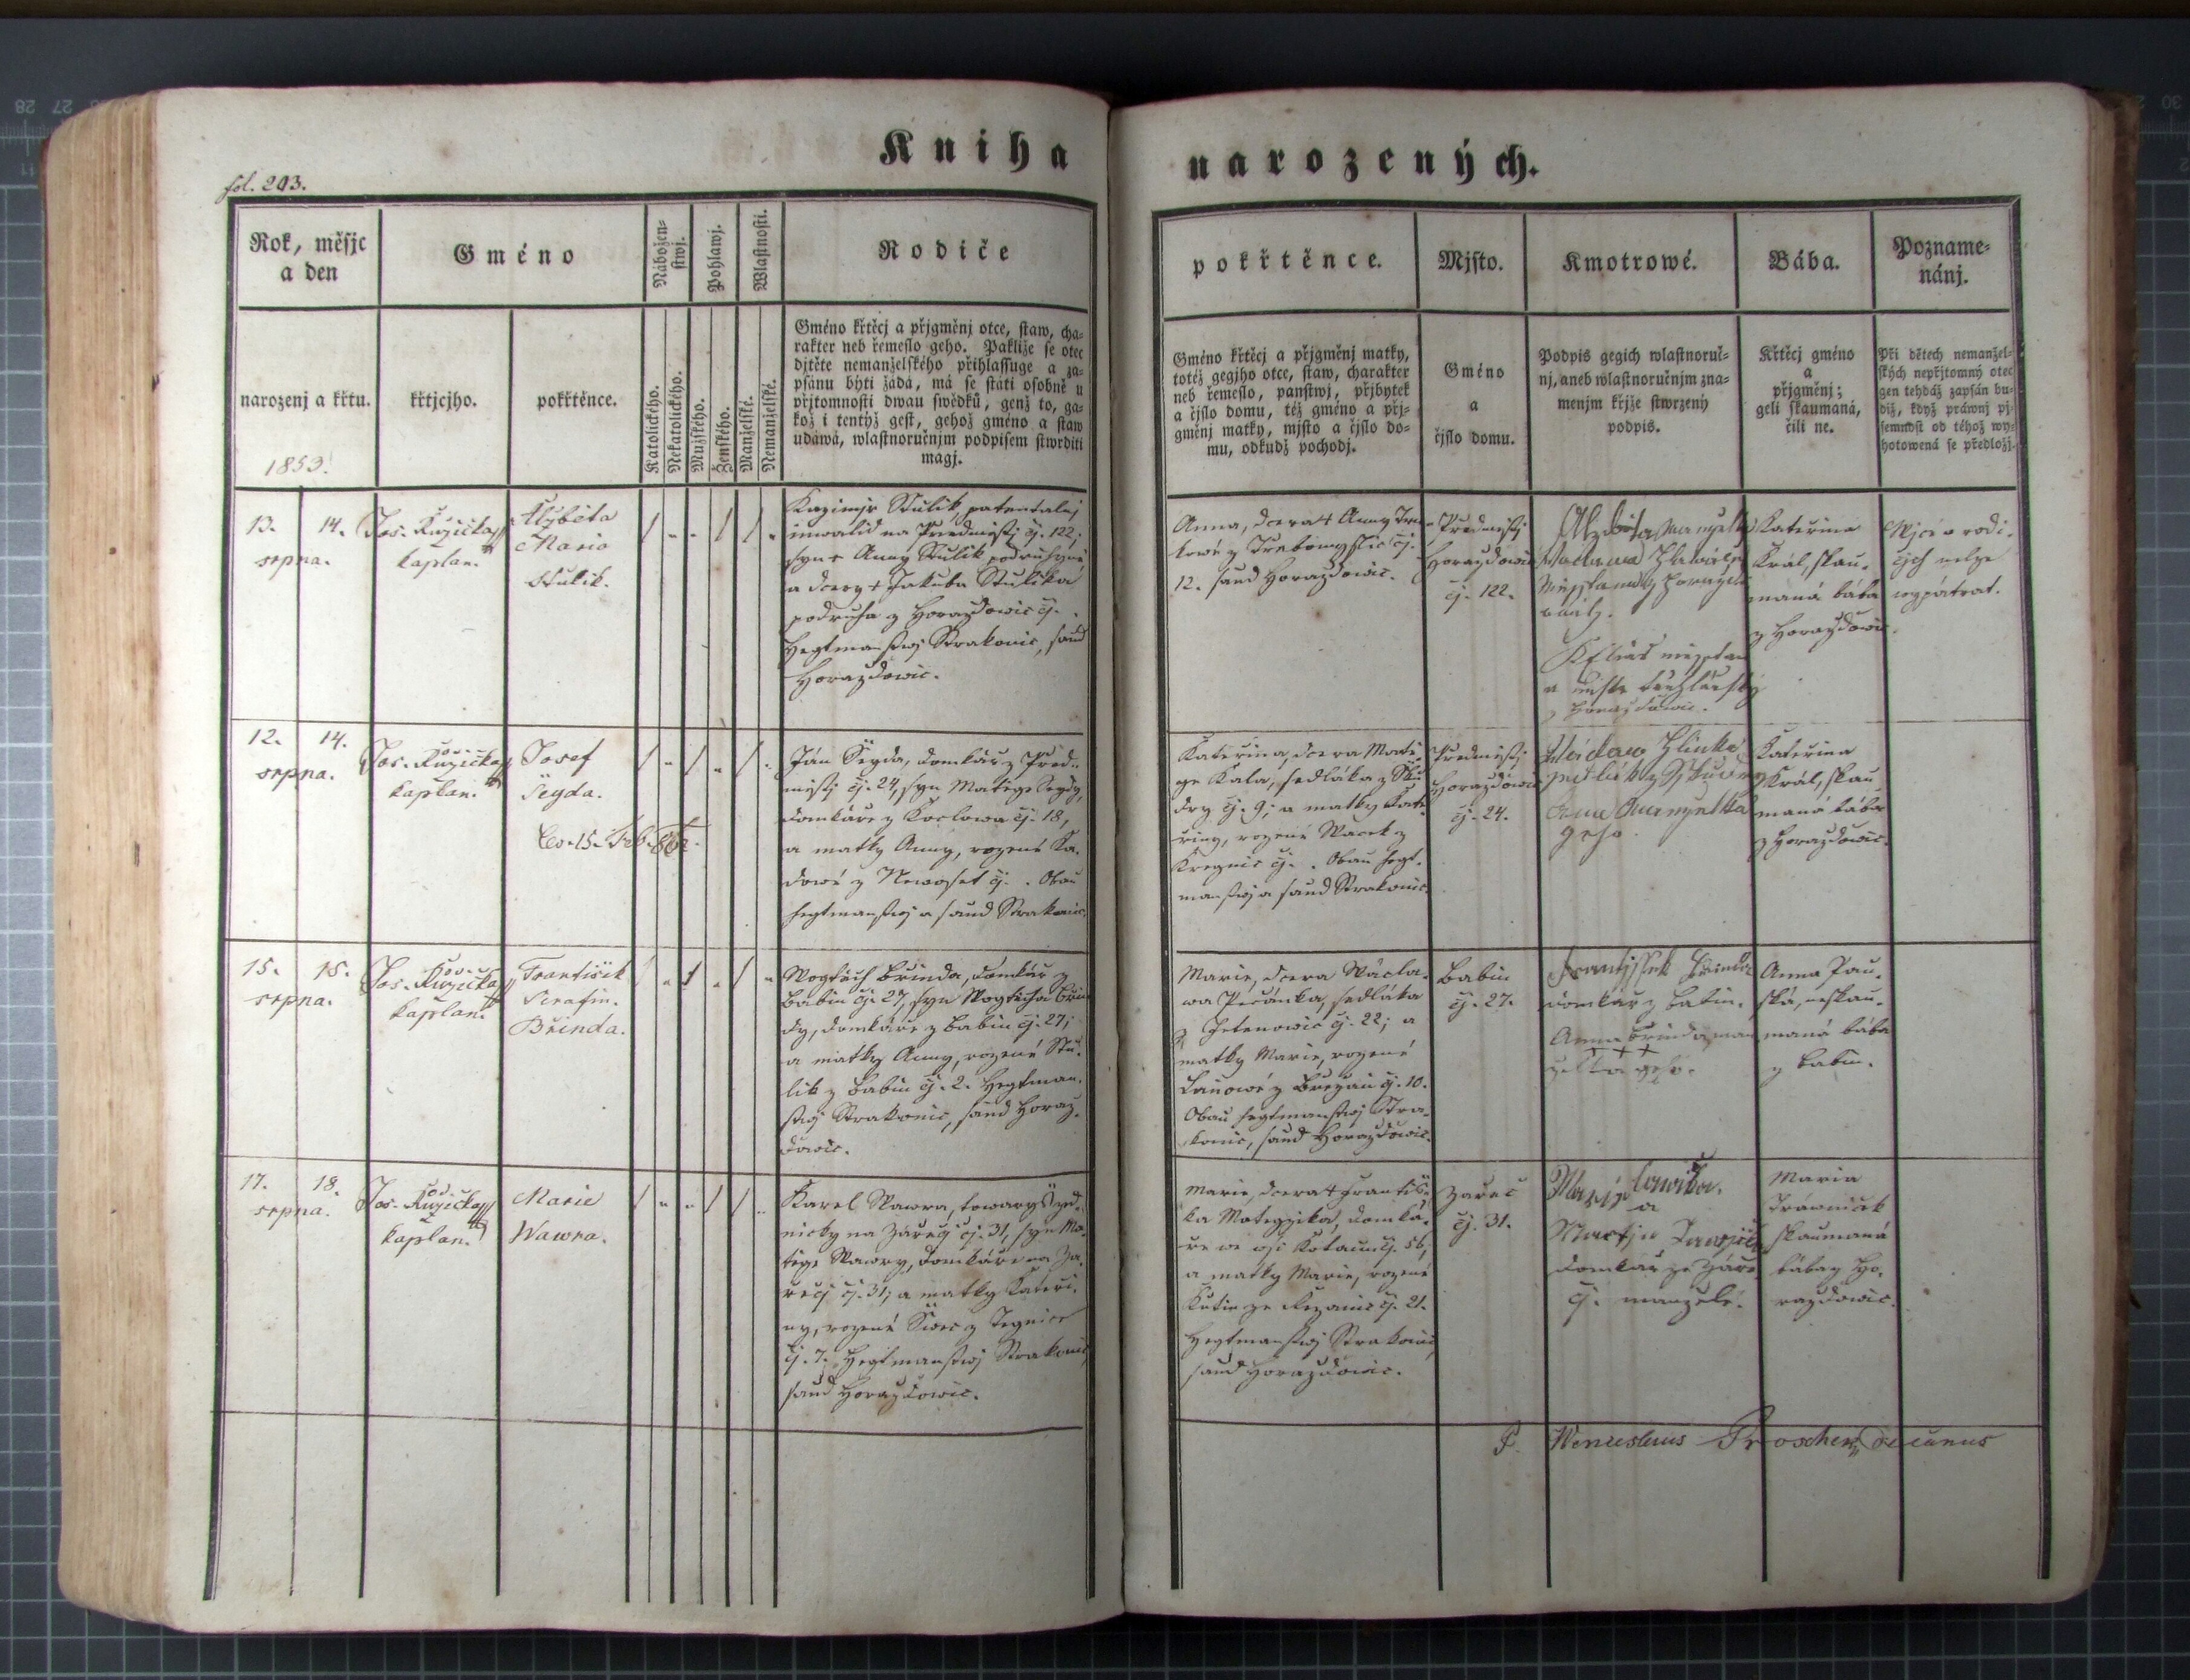 Kniha narozených.
fol. 203.
Rok, měsjc
a den
Gméno
Nábožen-
stwj.
Pohlawj.
Wlastnosti.
Rodiče
pokřtěnce.
Mjsto.
Kmotrowé.
Bába.
Pozname-
nánj.
narozenj a křtu.
1853.
křtjcjho.
pokřtěnce.
Katolického.
Nekatolického.
Mužského.
Ženského.
Manželské.
Nemanželské.
Gméno křtěcj a přjgměnj otce, staw, cha-
rakter neb řemeslo geho. Pakliže se otec
djtěte nemanželského přihlassuge a za-
psánu býti žádá, má se státi osobně u
přjtomnosti dwau swědků, genž to, ga-
kož i tentýž gest, gehož gméno a staw
udáwá, wlastnoručnjm podpisem stwrditi
magj.
Gméno křtěcj a přjgměnj matky,
totéž gegjho otce, staw, charakter
neb řemeslo, panstwj, přjbytek
a čjslo domu, též gméno a přj-
gměnj matky, mjsto a čjslo do-
mu, odkudž pochodj.
Gméno
a
čjslo domu.
Podpis gegich wlastnoruč-
nj, aneb wlastnoručnjm zna-
menjm křjže stwrzený
podpis.
Křtěcj gméno
a
přjgměnj;
geli skaumaná,
čili ne.
Při dětech nemanžel-
ských nepřjtomný otec
gen tehdáž zapsán bu-
diž, když práwnj pj-
semnost od téhož wy-
hotowená se předložj.
13. 14.
srpna.
Jos. Růžička
kaplan.
Alžběta
Maria
Stulik.
Kazimjr Stulik, patentalnj
inwalid na Předměstj čj. 122,
syn + Anny Stulik, podruhyně
a dcery + Jakuba Stulika
podruha z Horažďowic čj. .
Hegtmanstwj Strakonic, saud
Horažďowic.
Anna, dcera + Anny
z Třebomyslic čj.
12. saud Horažďowic.
Předměstj
Horažďowic
čj. 122.
Alžběta manželka
Kateřina
Král, skau-
maná bába
z Horažďowic.
Wjce o rodi-
čjch nelze
wypátrat.
12. 14.
srpna.
Jos. Růžička
kaplan.
Josef
Šegda.
Ján Šegda, domkář z Před-
městj čj. 24, syn Matěge Šegdy,
domkáře z Kocelowa čj. 18,
a matky Anny, rozené Ka-
dowé z Newosed čj. . Obau
hegtmanstwj a saud Strakonic.
Kateřina, dcera Matě-
ge Kala, sedláka z
čj. 9; a matky Kate-
řiny, rozené Wacek z
Kregnic čj. . Obau hegt-
manstwj a saud Strakonic.
Předměstj
Horažďowic
čj. 24.
Wáclaw Hlinka
geho
Kateřina
Král, skau-
maná bába
z Horažďowic.
15. 15.
srpna.
Jos. Růžička
kaplan.
František
Serafin.
Břinda.
Wogtěch Břinda, domkář z
Babin čj. 27, syn Wogtěcha Břin-
dy, domkáře z Babin čj. 27;
a matky Anny, rozené Stu-
lik z Babin čj. 2. Hegtman-
stwj Strakonic, saud Horaž-
ďowic.
Marie, dcera Wácla-
wa sedláka
z Hetenowic čj. 22; a
matky Marie, rozené
z Břežan čj. 10.
Obau hegtmanstwj Stra-
konic, saud Horažďowic.
Babin
čj. 27.
Frantjssek Břinda
domkář z Babin.
Anna Břinda man-
+ + +
želka geho.
Anna Pau-
ská, neskau-
maná bába
z Babin.
17. 18.
srpna.
Jos. Růžička
kaplan.
Marie
Wawra.
Karel Wawra, towaryš zed-
nický na Zářečj čj. 31, syn Ma-
těge Wawry, domkáře na Zá-
řečj čj. 31; a matky Kateři-
ny, rozené Šwec z Tegnice
čj. 7. Hegtmanstwj Strakonic,
saud Horažďowic.
Marie, dcera + Františ-
ka Mategzika, domká-
ře we wsi Kotaun čj. 56,
a matky Marie, rozené
Kutin ze čj. 21.
Hegtmanstwj Strakonic,
saud Horažďowic.
Zářeč
čj. 31.
a
Martjn
domkář ze Zářeč
čj. manželé.
Maria
Tráwniček
skaumaná
bába z Ho-
ražďowic.
P. Wenceslaus Proschek decanus